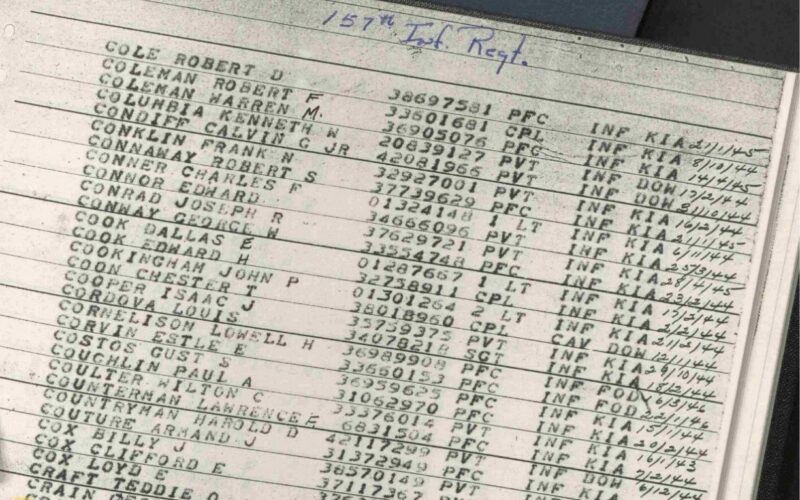 157th Inf. Regt.
COLE ROBERT D 38697581 PFC INF KIA 21/1/45
COLEMAN ROBERT F 33601681 CPL INF KIA 8/10/44
COLEMAN WARREN M. 36905076 PFC INF KIA 14/4/45
COLUMBIA KENNETH W 20839127 PVT INF DOW 17/2/44
CONDIFF CALVIN G JR 42081966 PVT INF DOW
CONKLIN FRANK N 32927001 PVT INF KIA 16/2/44
CONNAWAY ROBERT S 37739629 PFC INF KIA 21/1/45
CONNER CHARLES F 01324148 1 LT INF KIA 6/11/44
CONNOR EDWARD 34666096 PVT INF KIA
CONRAD JOSEPH R 37629721 PVT INF KIA 28/4/45
CONWAY GEORGE W 33554748 PFC INF KIA 23/2/44
COOK DALLAS E 01287667 1 LT INF KIA 17/2/44
COOK EDWARD H 32758911 CPL INF KIA 2/2/44
COOKINGHAM JOHN P 01301264 2 LT INF KIA 21/2/44
COON CHESTER T 38018960 CPL CAV DOW 12/1/44
COOPER ISAAC J 35759375 PVT INF KIA 29/10/44
CORDOVA LOUIS 34078218 SGT INF KIA 18/2/44
CORNELISON LOWELL H 36989908 PFC INF FOD 6/3/46
CORVIN ESTLE E 33660153 PFC INF FOD 22/1/46
COSTOS GUST S 36959625 PFC INF KIA 15/1/44
COUGHLIN PAUL A 31062970 PFC INF KIA 20/2/44
COULTER WILTON C 33376014 PVT INF KIA 16/1/43
COUNTERMAN LAWRENCE E 6831504 PFC INF DOW 7/2/44
COUNTRYMAN HAROLD D 42112299 PVT INF KIA 6/12/44
COUTURE ARMAND J 31372949 PFC
COX BILLY J 38570149 PVT
COX CLIFFORD E 37117367
COX LOYD E
CRAFT TEDDIE O
CRAIN